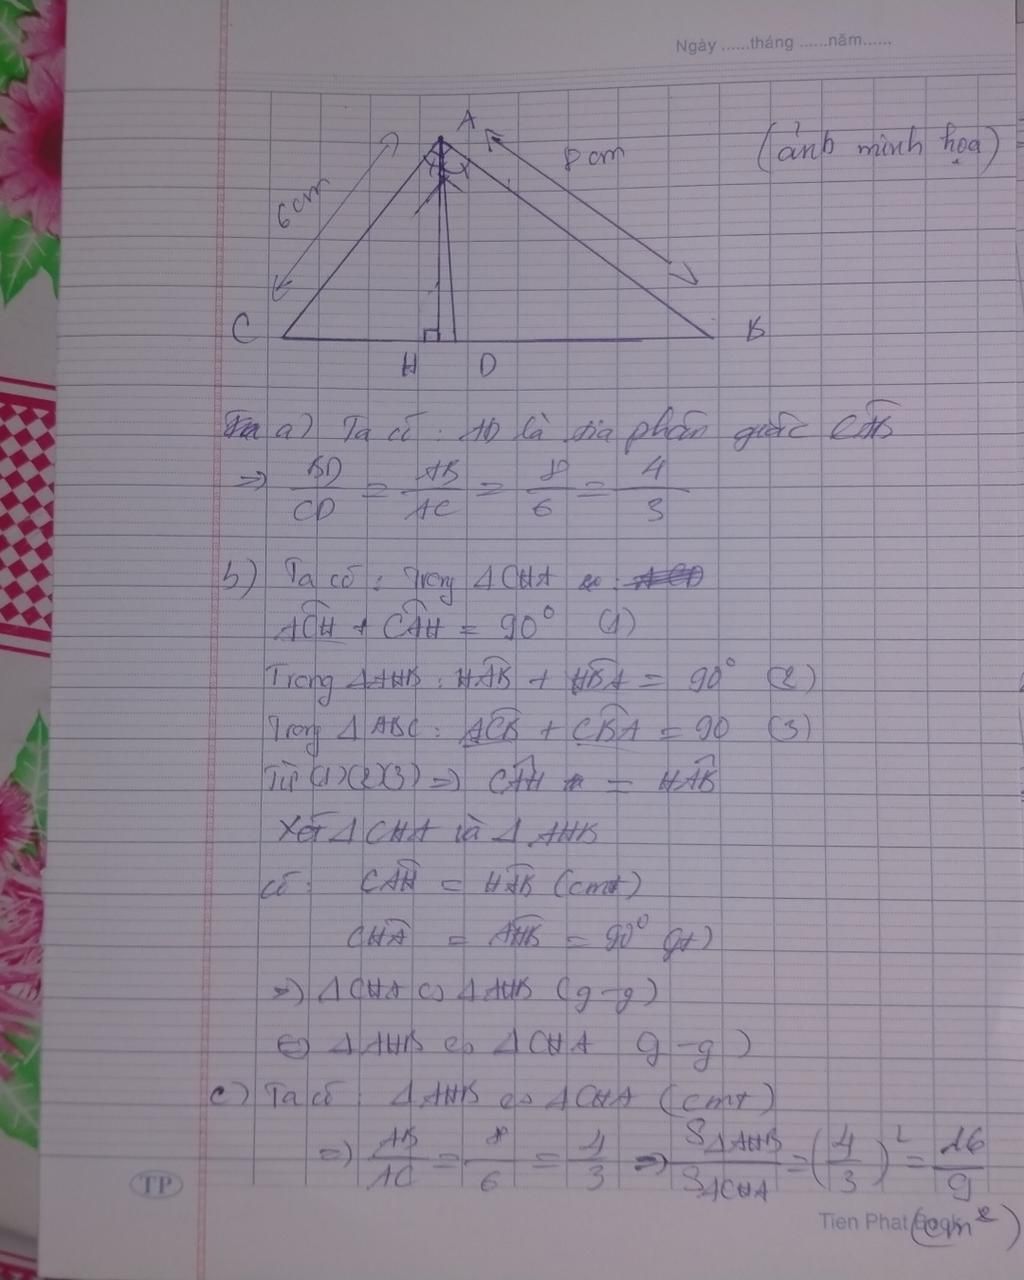 Ngày ......tháng ......năm......
A
6cm
8cm
(ảnh minh họa)
C
B
H
D
a) Ta có : AD là tia phân giác CAB
=> BD/CD = AB/AC = 8/6 = 4/3
b) Ta có : Trong Δ CHA
ACH + CAH = 90° (1)
Trong Δ AHB : HAB + HBA = 90° (2)
Trong Δ ABC : ACB + CBA = 90 (3)
Từ (1)(2)(3) => CAH = HAB
Xét Δ CHA và Δ AHB
có : CAH = HAB (cmt)
CHA = AHB = 90° gt)
=> Δ CHA ∽ Δ AHB (g-g)
<=> Δ AHB ∽ Δ CHA g-g)
c) Ta có : Δ AHB ∽ Δ CHA (cmt)
=> AB/AC = 8/6 = 4/3 => SΔAHB/SΔCHA = (4/3)² = 16/9
TP
Tien Phat
(cm²)